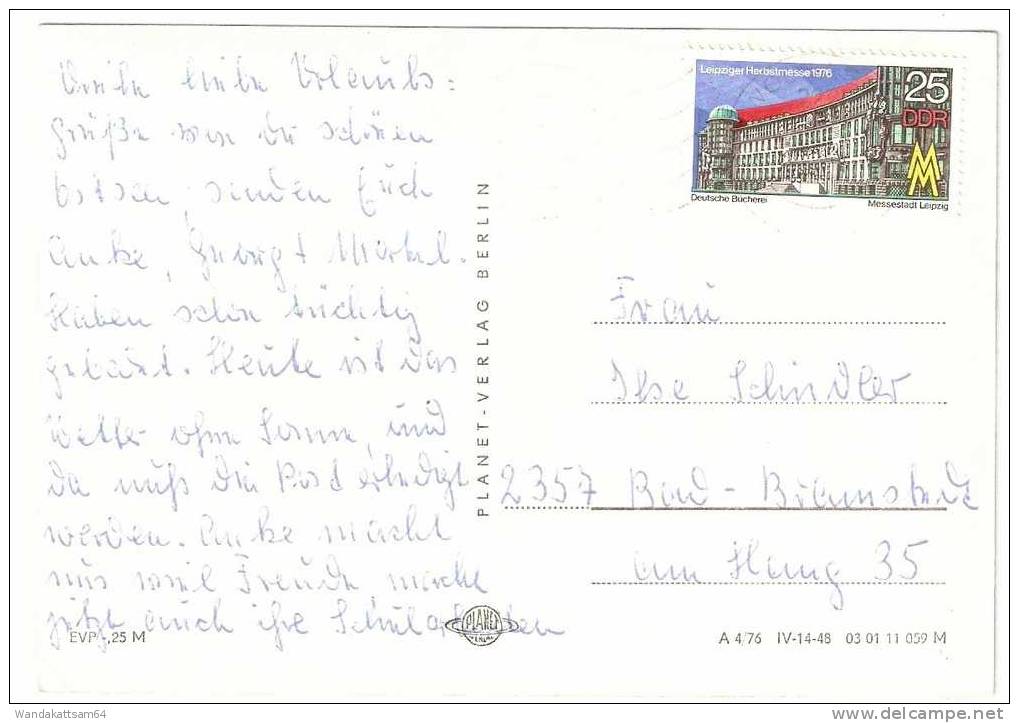 Viele liebe Urlaubs=
grüße von der schönen
Ostsee, senden Euch
Anke, Georg +
Haben schon tüchtig
gebadet. Heute ist das
Wetter ohne Sonne, und
da muß die Post erledigt
werden. Anke macht
uns viel Freude, macht
jetzt auch ihre Schularbeiten
EVP -,25 M
PLANET-VERLAG BERLIN
PLANET
Leipziger Herbstmesse 1976
25
DDR
M
Deutsche Bücherei
Messestadt Leipzig
Frau
Ilse Schindler
2357 Bad-Bramstedt
Am Hang 35
A 4/76 IV-14-48 03 01 11 059 M
Wandakattsam64
delcampe.net